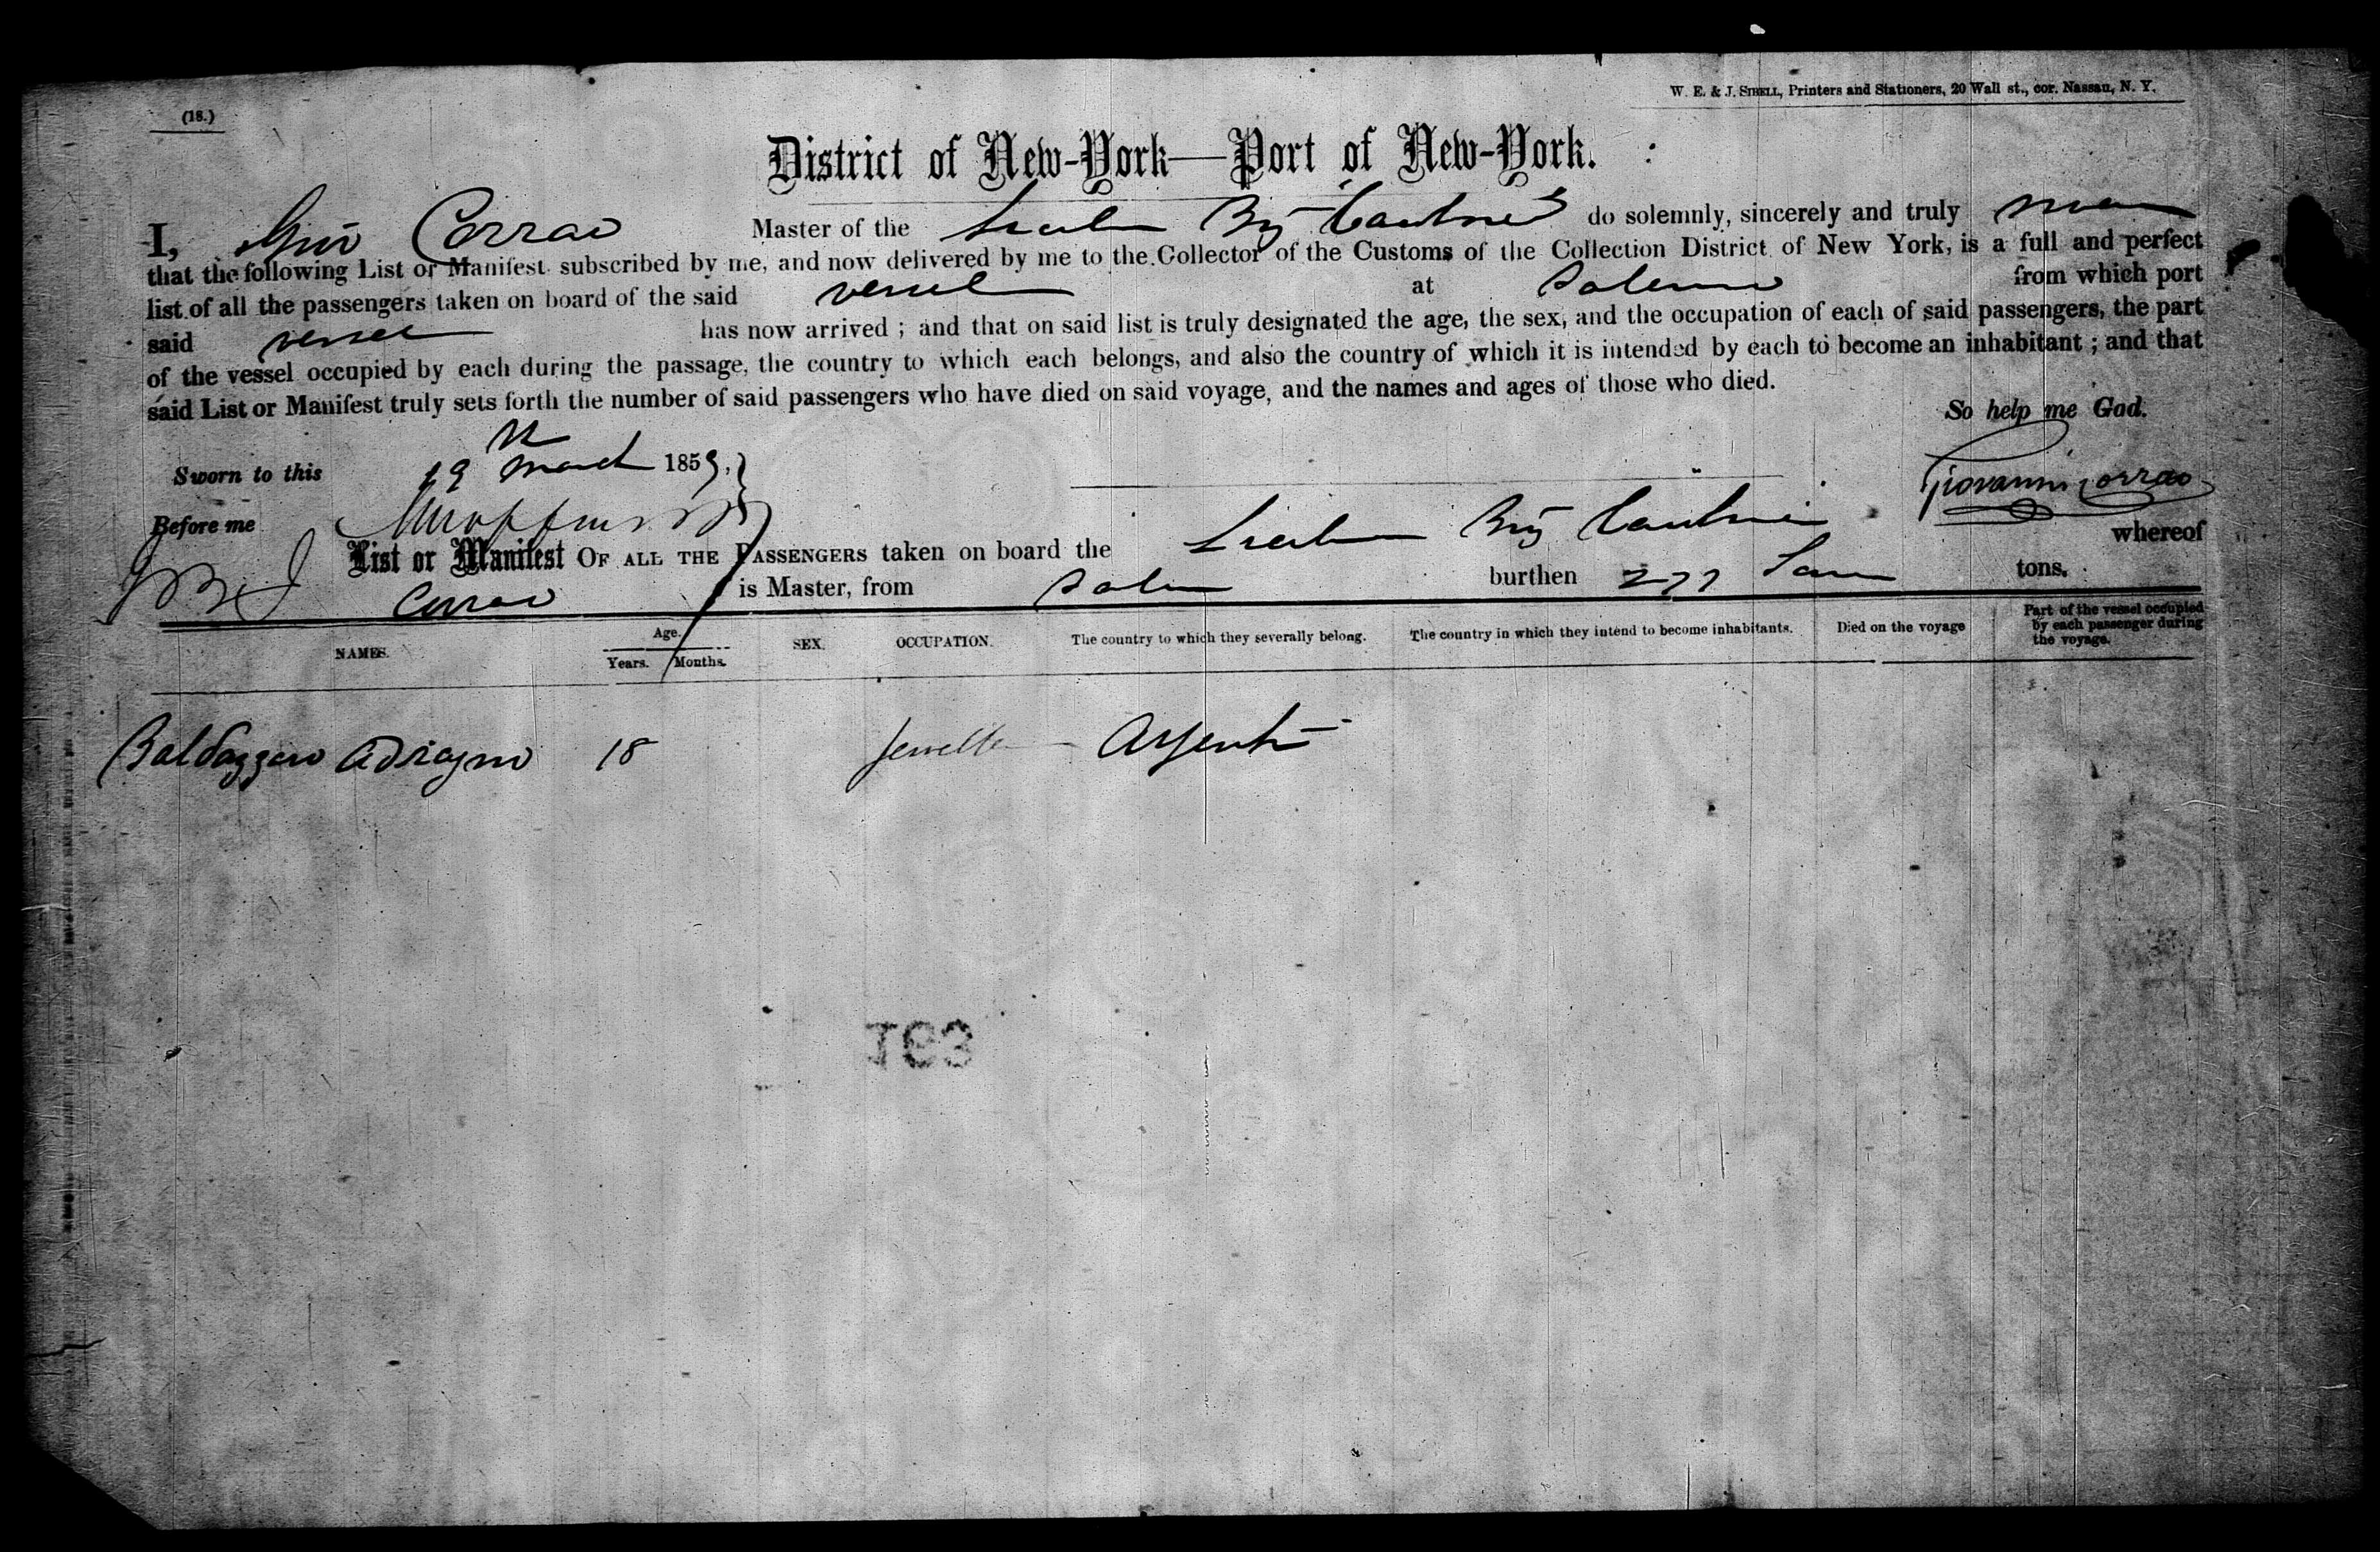 (18.)
W. E. & J. SIBELL, Printers and Stationers, 20 Wall st., cor. Nassau, N. Y.
District of New-York—Port of New-York.
I, Corrao Master of the Brig do solemnly, sincerely and truly
that the following List or Manifest subscribed by me, and now delivered by me to the Collector of the Customs of the Collection District of New York, is a full and perfect
list of all the passengers taken on board of the said vessel at from which port
said vessel has now arrived ; and that on said list is truly designated the age, the sex, and the occupation of each of said passengers, the part
of the vessel occupied by each during the passage, the country to which each belongs, and also the country of which it is intended by each to become an inhabitant ; and that
said List or Manifest truly sets forth the number of said passengers who have died on said voyage, and the names and ages of those who died.
So help me God.
Sworn to this 19 March 1859,
Giovanni Corrao
Before me
List or Manifest OF ALL THE PASSENGERS taken on board the Brig whereof
Corrao is Master, from burthen 277 tons.
NAMES. Age. Years. Months. SEX. OCCUPATION. The country to which they severally belong. The country in which they intend to become inhabitants. Died on the voyage Part of the vessel occupied by each passenger during the voyage.
Baldazzaro Adragno 18 Jeweller